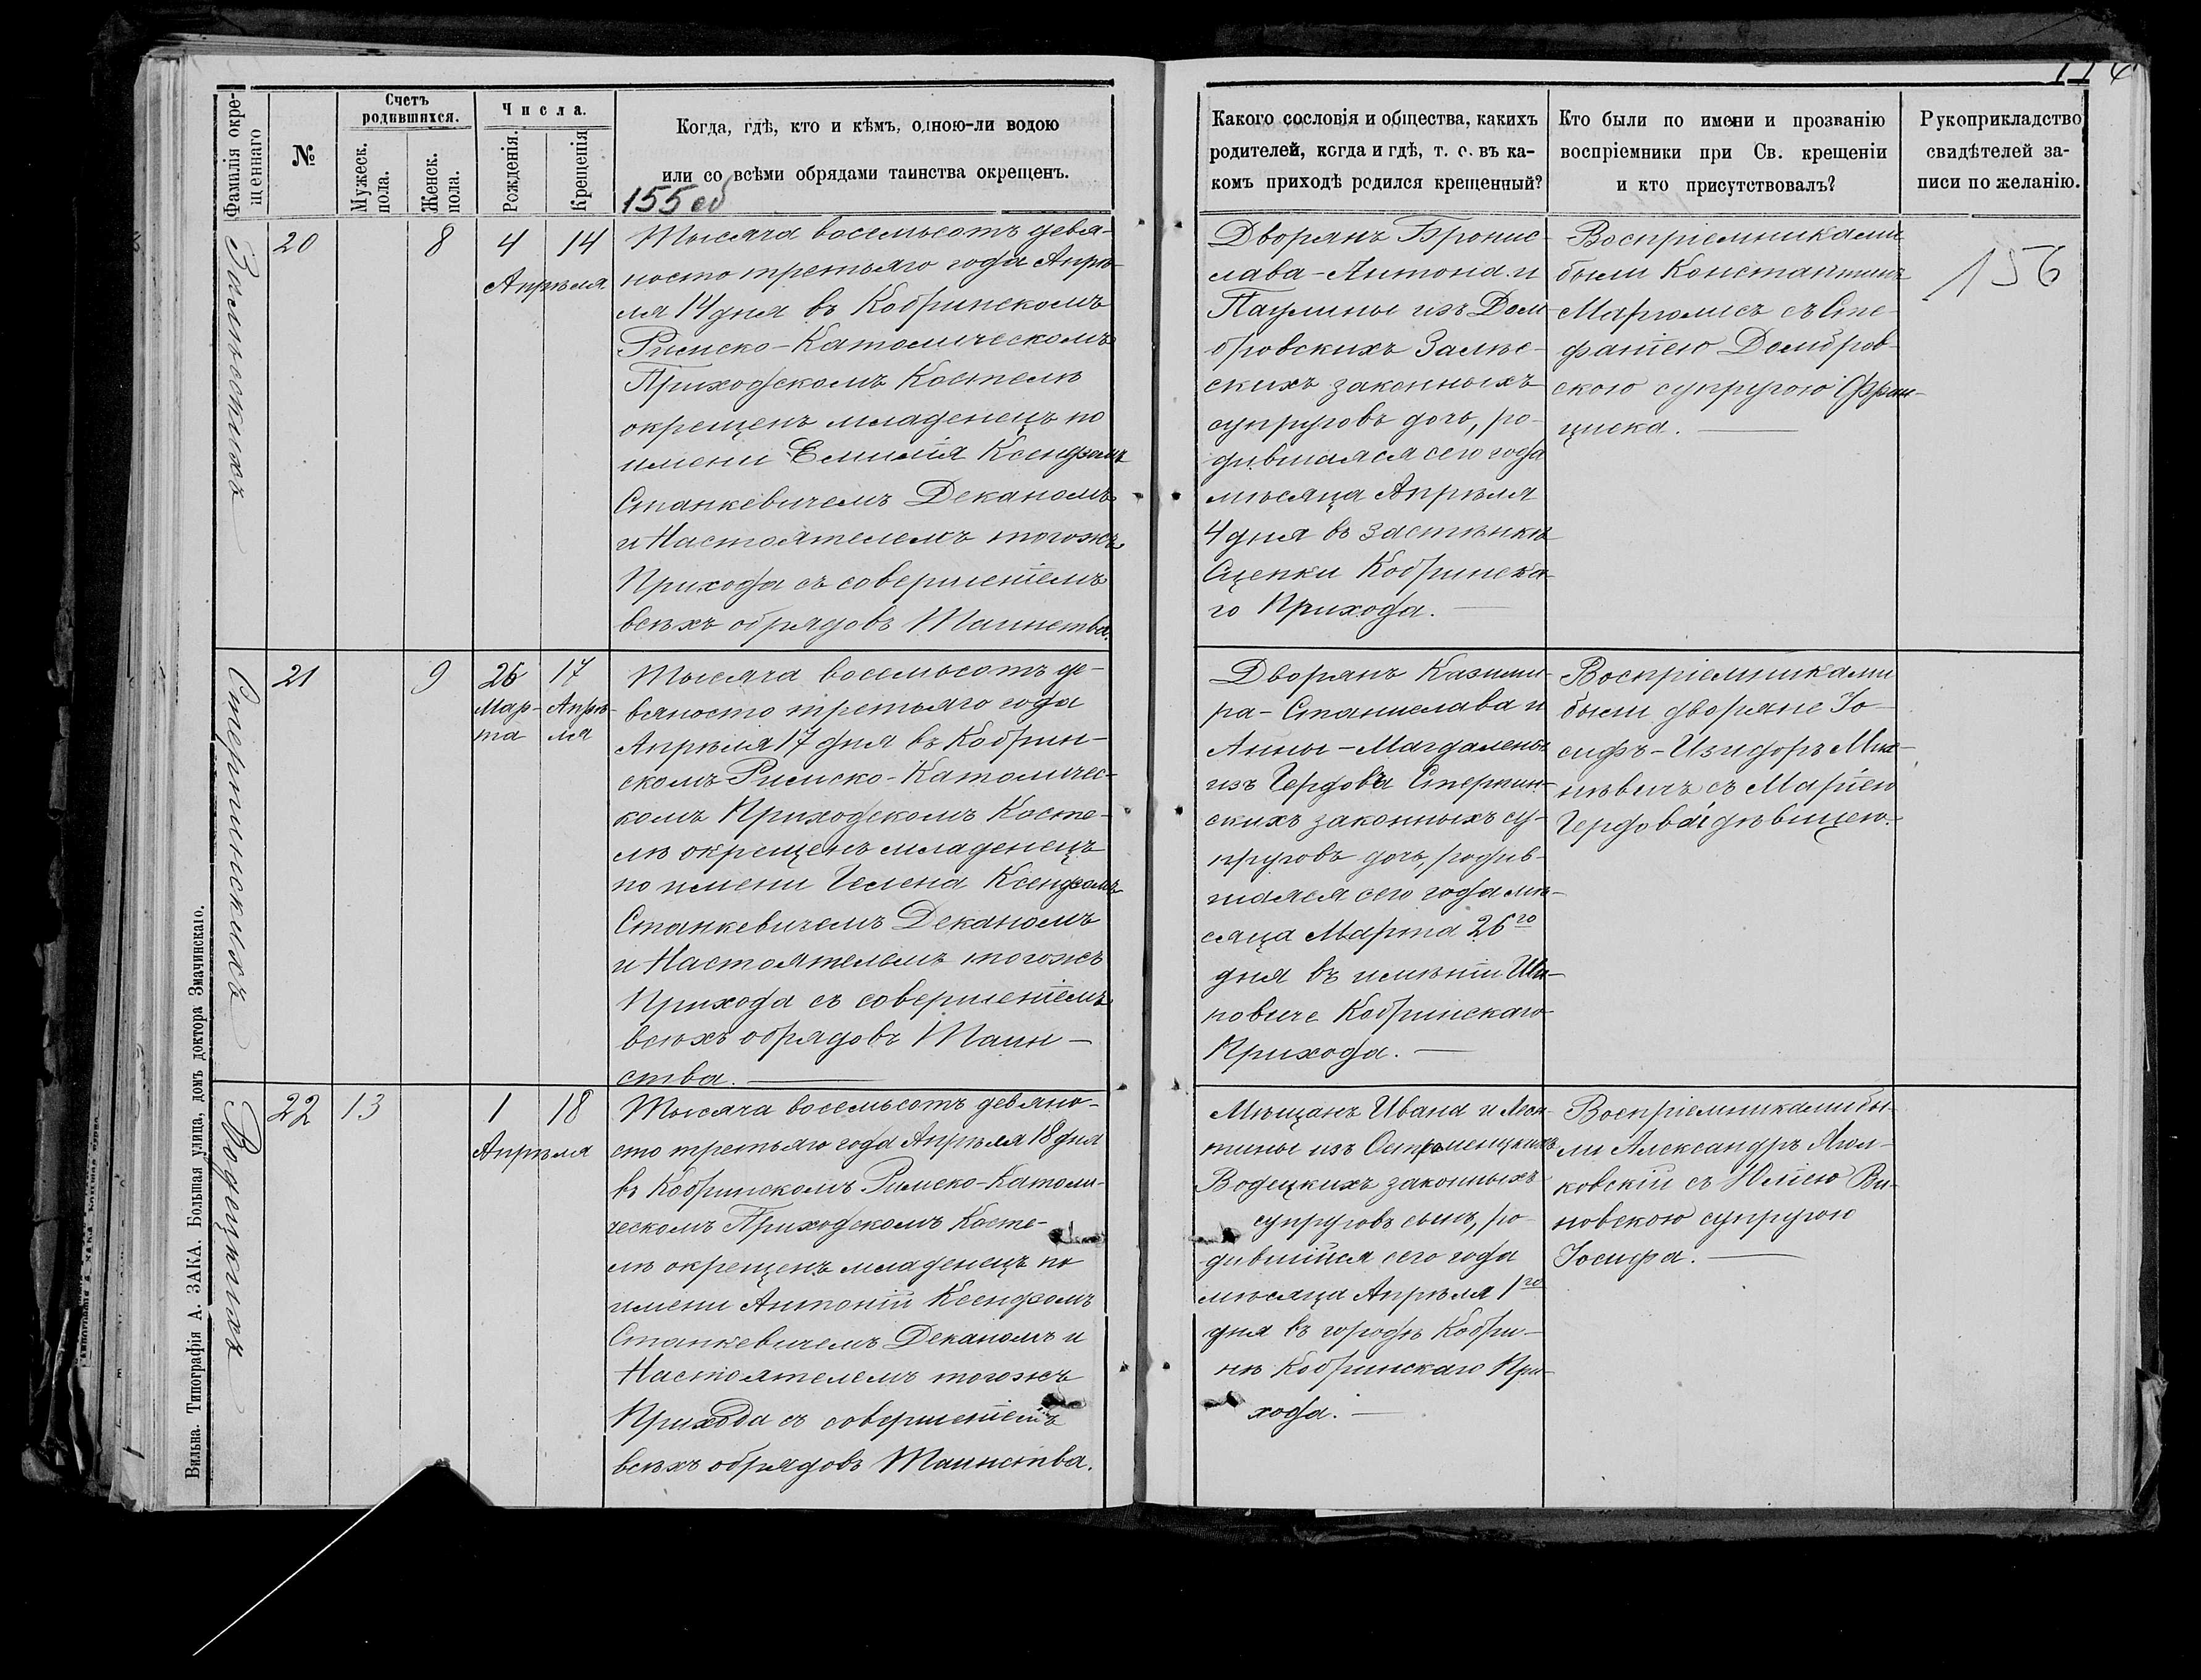 Фамилія окре-
щеннаго
№
Счетъ
родившихся.
Мужеск.
пола.
Женск.
пола.
Числа.
Рожденія.
Крещенія
Когда, гдѣ, кто и кѣмъ, одною-ли водою
или со всѣми обрядами таинства окрещенъ.
155 об
Залѣскихъ
20
8
4
14
Апрѣля
Тысяча восемьсотъ девя-
носто третьяго года Апрѣ-
ля 14 дня въ Кобринскомъ
Римско-Католическомъ
Приходскомъ Костелѣ
окрещенъ младенецъ по
имени Емилія Ксендзомъ
Станкевичемъ Деканомъ
и Настоятелемъ тогожъ
Прихода съ совершеніемъ
всѣхъ обрядовъ Таинства.
Стерпинскихъ
21
9
26
Мар-
та
17
Апрѣ-
ля
Тысяча восемьсотъ де-
вяносто третьяго года
Апрѣля 17 дня въ Кобрин-
скомъ Римско-Католичес-
комъ Приходскомъ Косте-
лѣ окрещенъ младенецъ
по имени Гелена Ксендзомъ
Станкевичемъ Деканомъ
и Настоятелемъ тогожъ
Прихода съ совершеніемъ
всѣхъ обрядовъ Таин-
ства.
Водецкихъ
22
13
1
18
Апрѣля
Тысяча восемьсотъ девяно-
сто третьяго года Апрѣля 18 дня
въ Кобринскомъ Римско-Католи-
ческомъ Приходскомъ Косте-
лѣ окрещенъ младенецъ по
имени Антоній Ксендзомъ
Станкевичемъ Деканомъ и
Настоятелемъ тогожъ
Прихода съ совершеніемъ
всѣхъ обрядовъ Таинства.
Вильна. Типографія А. ЗАКА. Большая улица, домъ доктора Змачинскаго.
Какого сословія и общества, какихъ
родителей, когда и гдѣ, т. е. въ ка-
комъ приходѣ родился крещенный?
Кто были по имени и прозванію
воспріемники при Св. крещеніи
и кто присутствовалъ?
Рукоприкладство
свидѣтелей за-
писи по желанію.
156
Дворянъ Бронис-
лава-Антона и
Паулины изъ Дом-
бровскихъ Залѣс-
скихъ законныхъ
супруговъ дочь, ро-
дившаяся сего года
мѣсяца Апрѣля
4 дня въ застѣнкѣ
Сцепки Кобринска-
го Прихода.
Воспріемниками
были Константинъ
съ Сте-
фаніею Домбров-
скою супругою Фран-
циска.
Дворянъ Казими-
ра-Станислава и
Анны-Магдалены
изъ Стерпин-
скихъ законныхъ су-
пруговъ дочь, родив-
шаяся сего года мѣ-
сяца Марта 26го
дня въ имѣніи Ива-
новиче Кобринскаго
Прихода.
Воспріемниками
были дворяне Іо-
сифъ-Изидоръ Мих-
нѣвичъ съ Маріею
дѣвицею.
Мѣщанъ Ивана и Леон-
тины изъ Остромецкихъ
Водецкихъ законныхъ
супруговъ сынъ, ро-
дившійся сего года
мѣсяца Апрѣля 1го
дня въ городѣ Кобри-
нѣ Кобринскаго При-
хода.
Воспріемниками бы-
ли Александръ Ямл-
ковскій съ Юліею Ви-
новскою супругою
Іосифа.